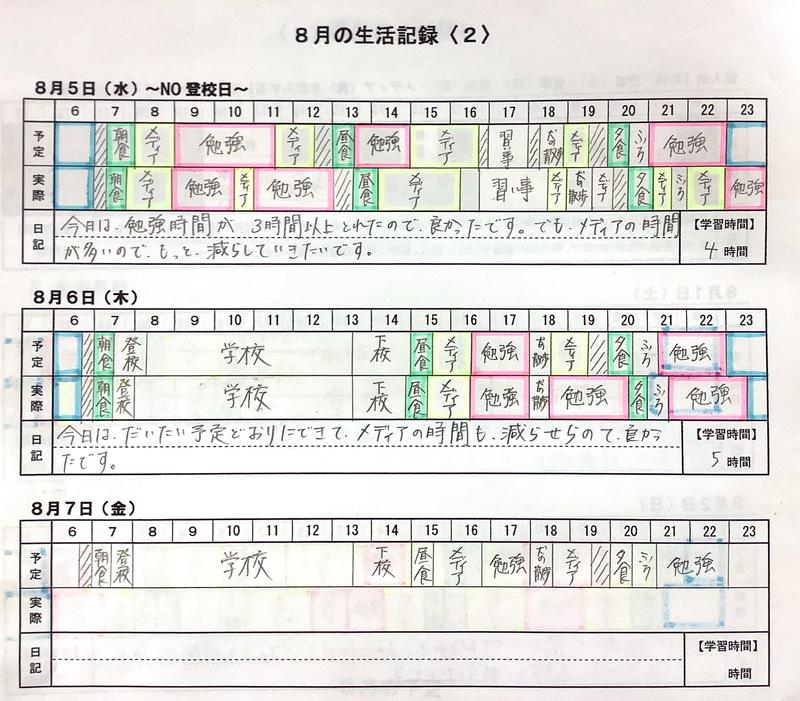 8月の生活記録〈2〉
8月5日（水）～NO登校日～
6 7 8 9 10 11 12 13 14 15 16 17 18 19 20 21 22 23
予定 朝食 メディア 勉強 メディア 昼食 勉強 メディア 習事 お散歩 メディア 夕食 ふろ 勉強
実際 朝食 メディア 勉強 メディア 勉強 昼食 メディア 習い事 メディア お散歩 メディア 夕食 メディア ふろ メディア 勉強
日記 今日は、勉強時間が 3時間以上とれたので、良かったです。でも、メディアの時間
が多いので、もっと、減らしていきたいです。
【学習時間】
4時間
8月6日（木）
6 7 8 9 10 11 12 13 14 15 16 17 18 19 20 21 22 23
予定 朝食 登校 学校 下校 昼食 メディア 勉強 お散歩 メディア 夕食 ふろ 勉強
実際 朝食 登校 学校 下校 昼食 メディア 勉強 お散歩 勉強 夕食 ふろ 勉強
日記 今日は、だいたい予定どおりにできて、メディアの時間も、減らせらので、良かっ
たです。
【学習時間】
5時間
8月7日（金）
6 7 8 9 10 11 12 13 14 15 16 17 18 19 20 21 22 23
予定 朝食 登校 学校 下校 昼食 メディア 勉強 お散歩 メディア 夕食 ふろ 勉強
実際
日記
【学習時間】
時間